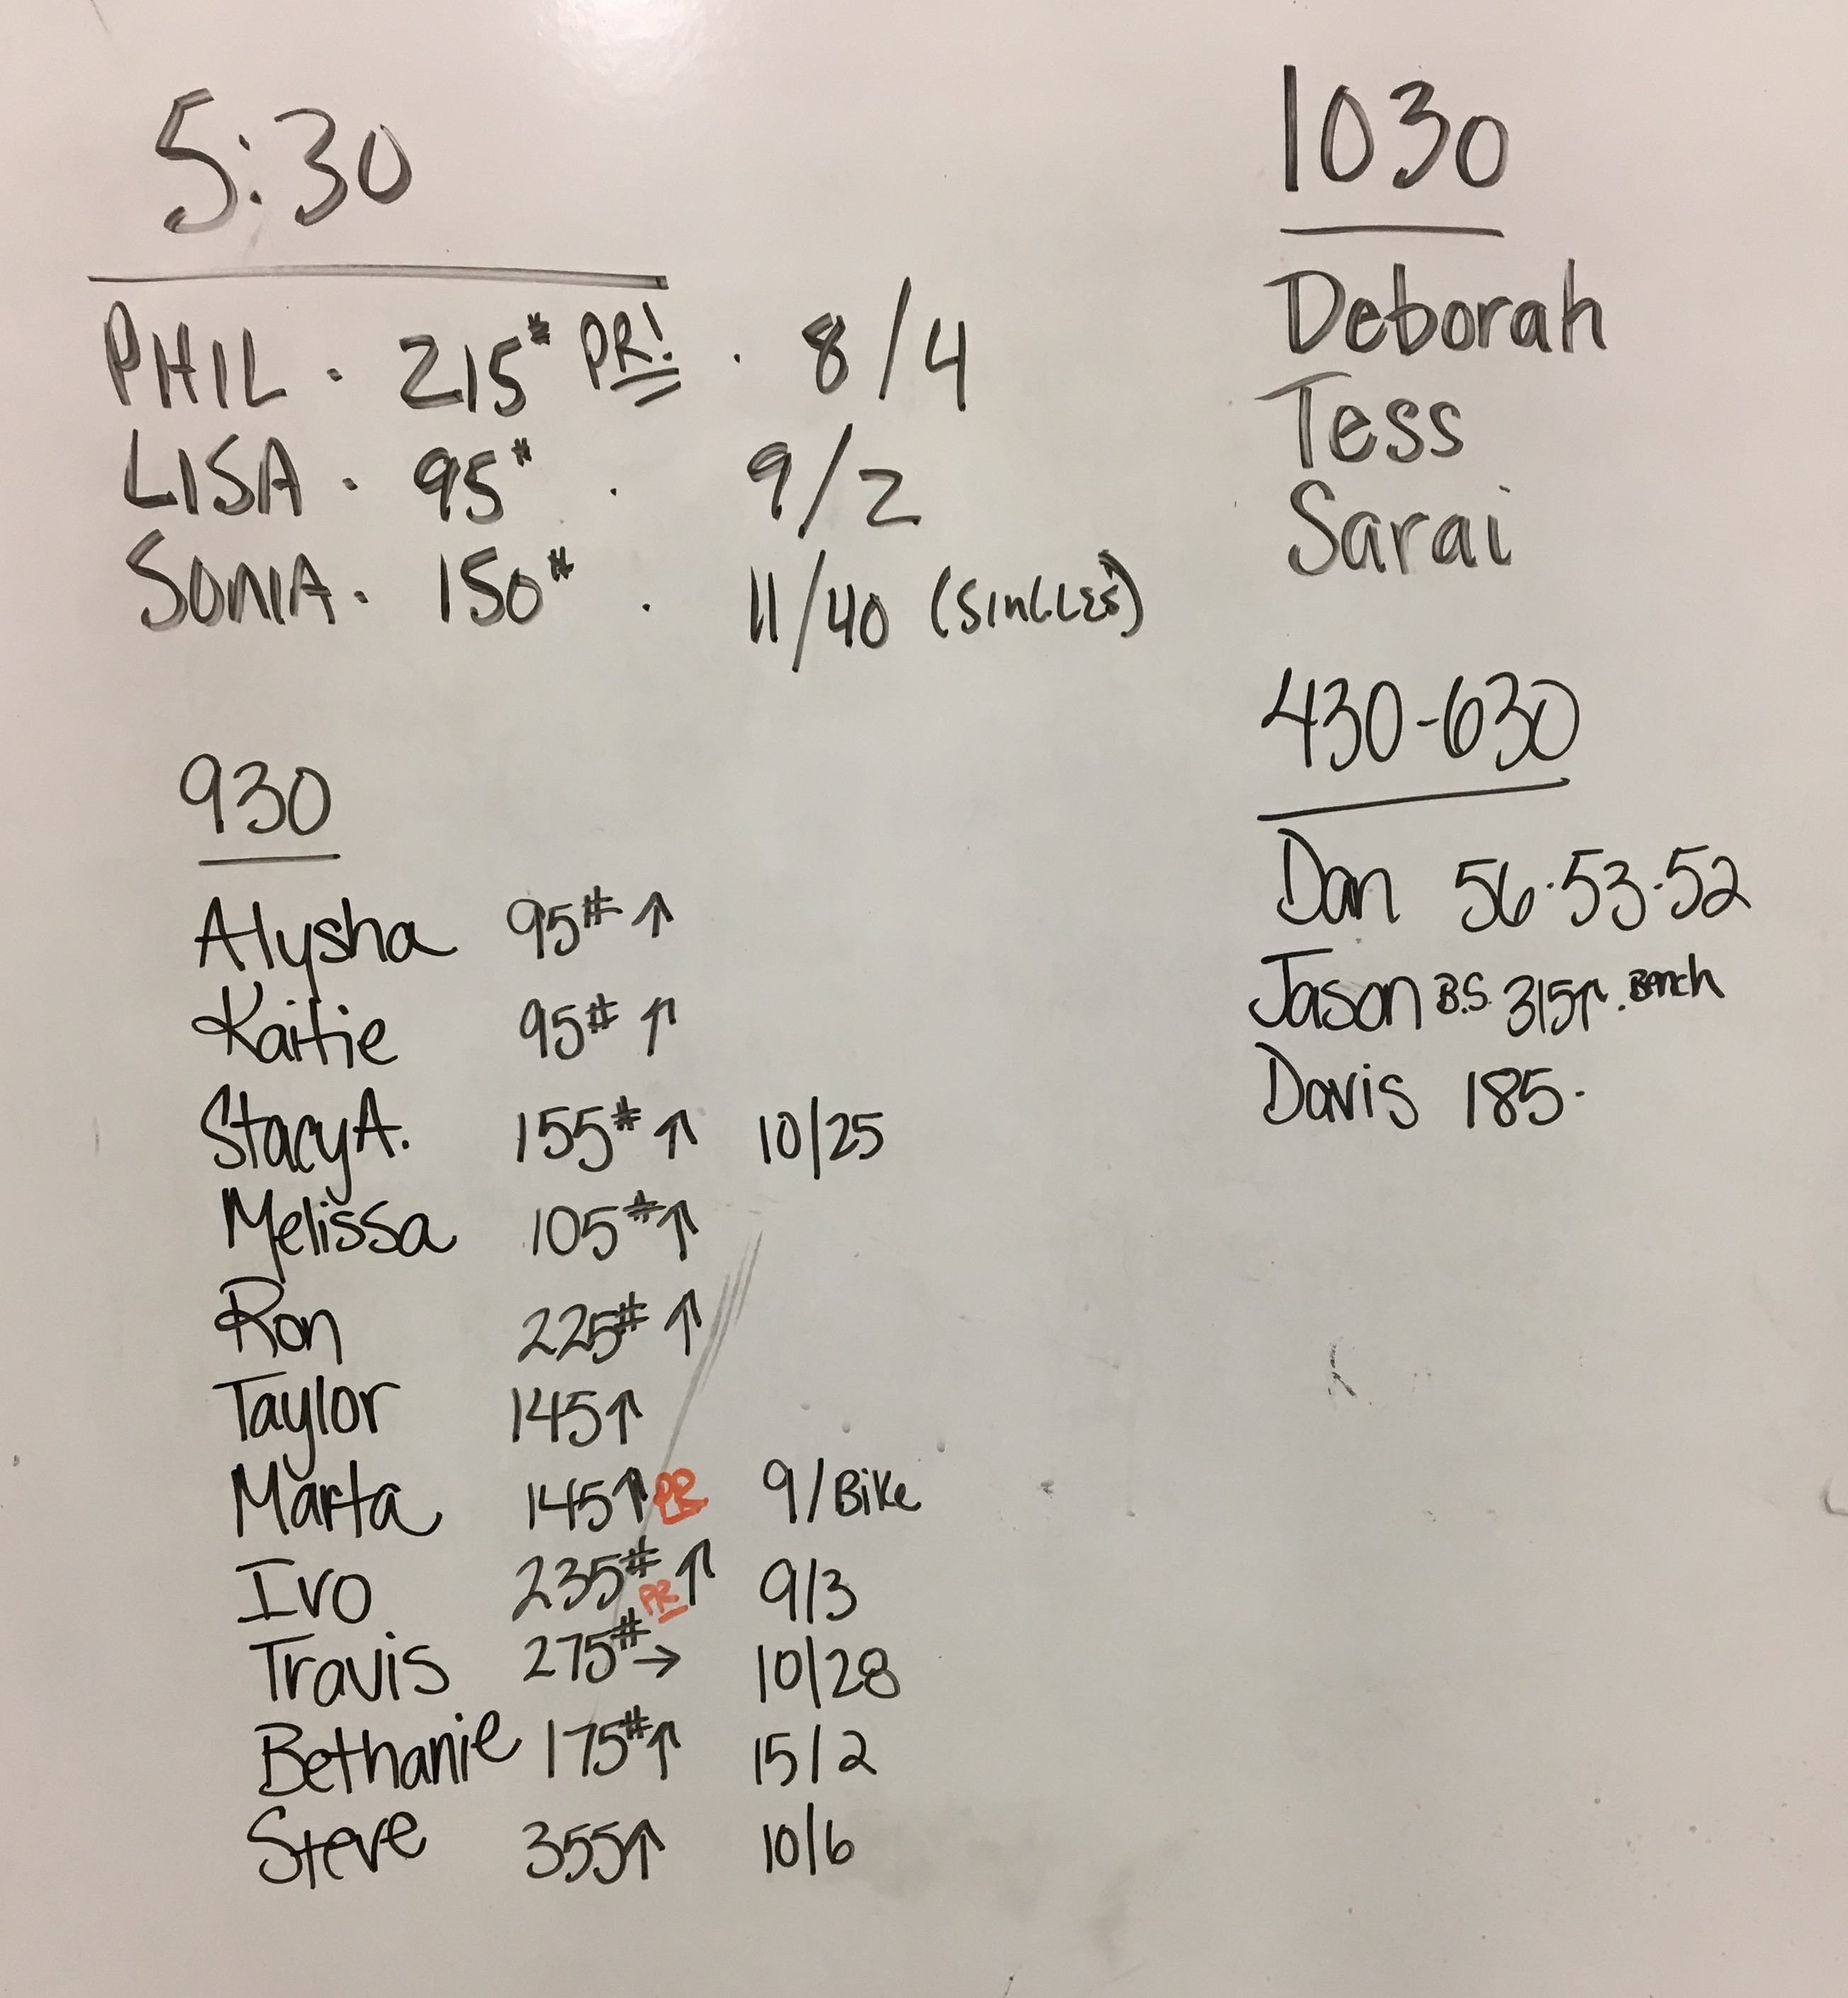 5:30
PHIL · 215# PR! · 8/4
LISA · 95# · 9/2
SONIA · 150# · 11/40 (SINGLES)
930
Alysha 95# ↑
Kaitie 95# ↑
Stacy A. 155# ↑ 10/25
Melissa 105# ↑
Ron 225# ↑
Taylor 145 ↑
Marta 145 ↑ PR 9/Bike
Ivo 235# PR ↑ 9/3
Travis 275# → 10/28
Bethanie 175# ↑ 15/2
Steve 355 ↑ 10/6
1030
Deborah
Tess
Sarai
430-630
Dan 56·53·52
Jason B.S. 315↑. Bench
Davis 185·